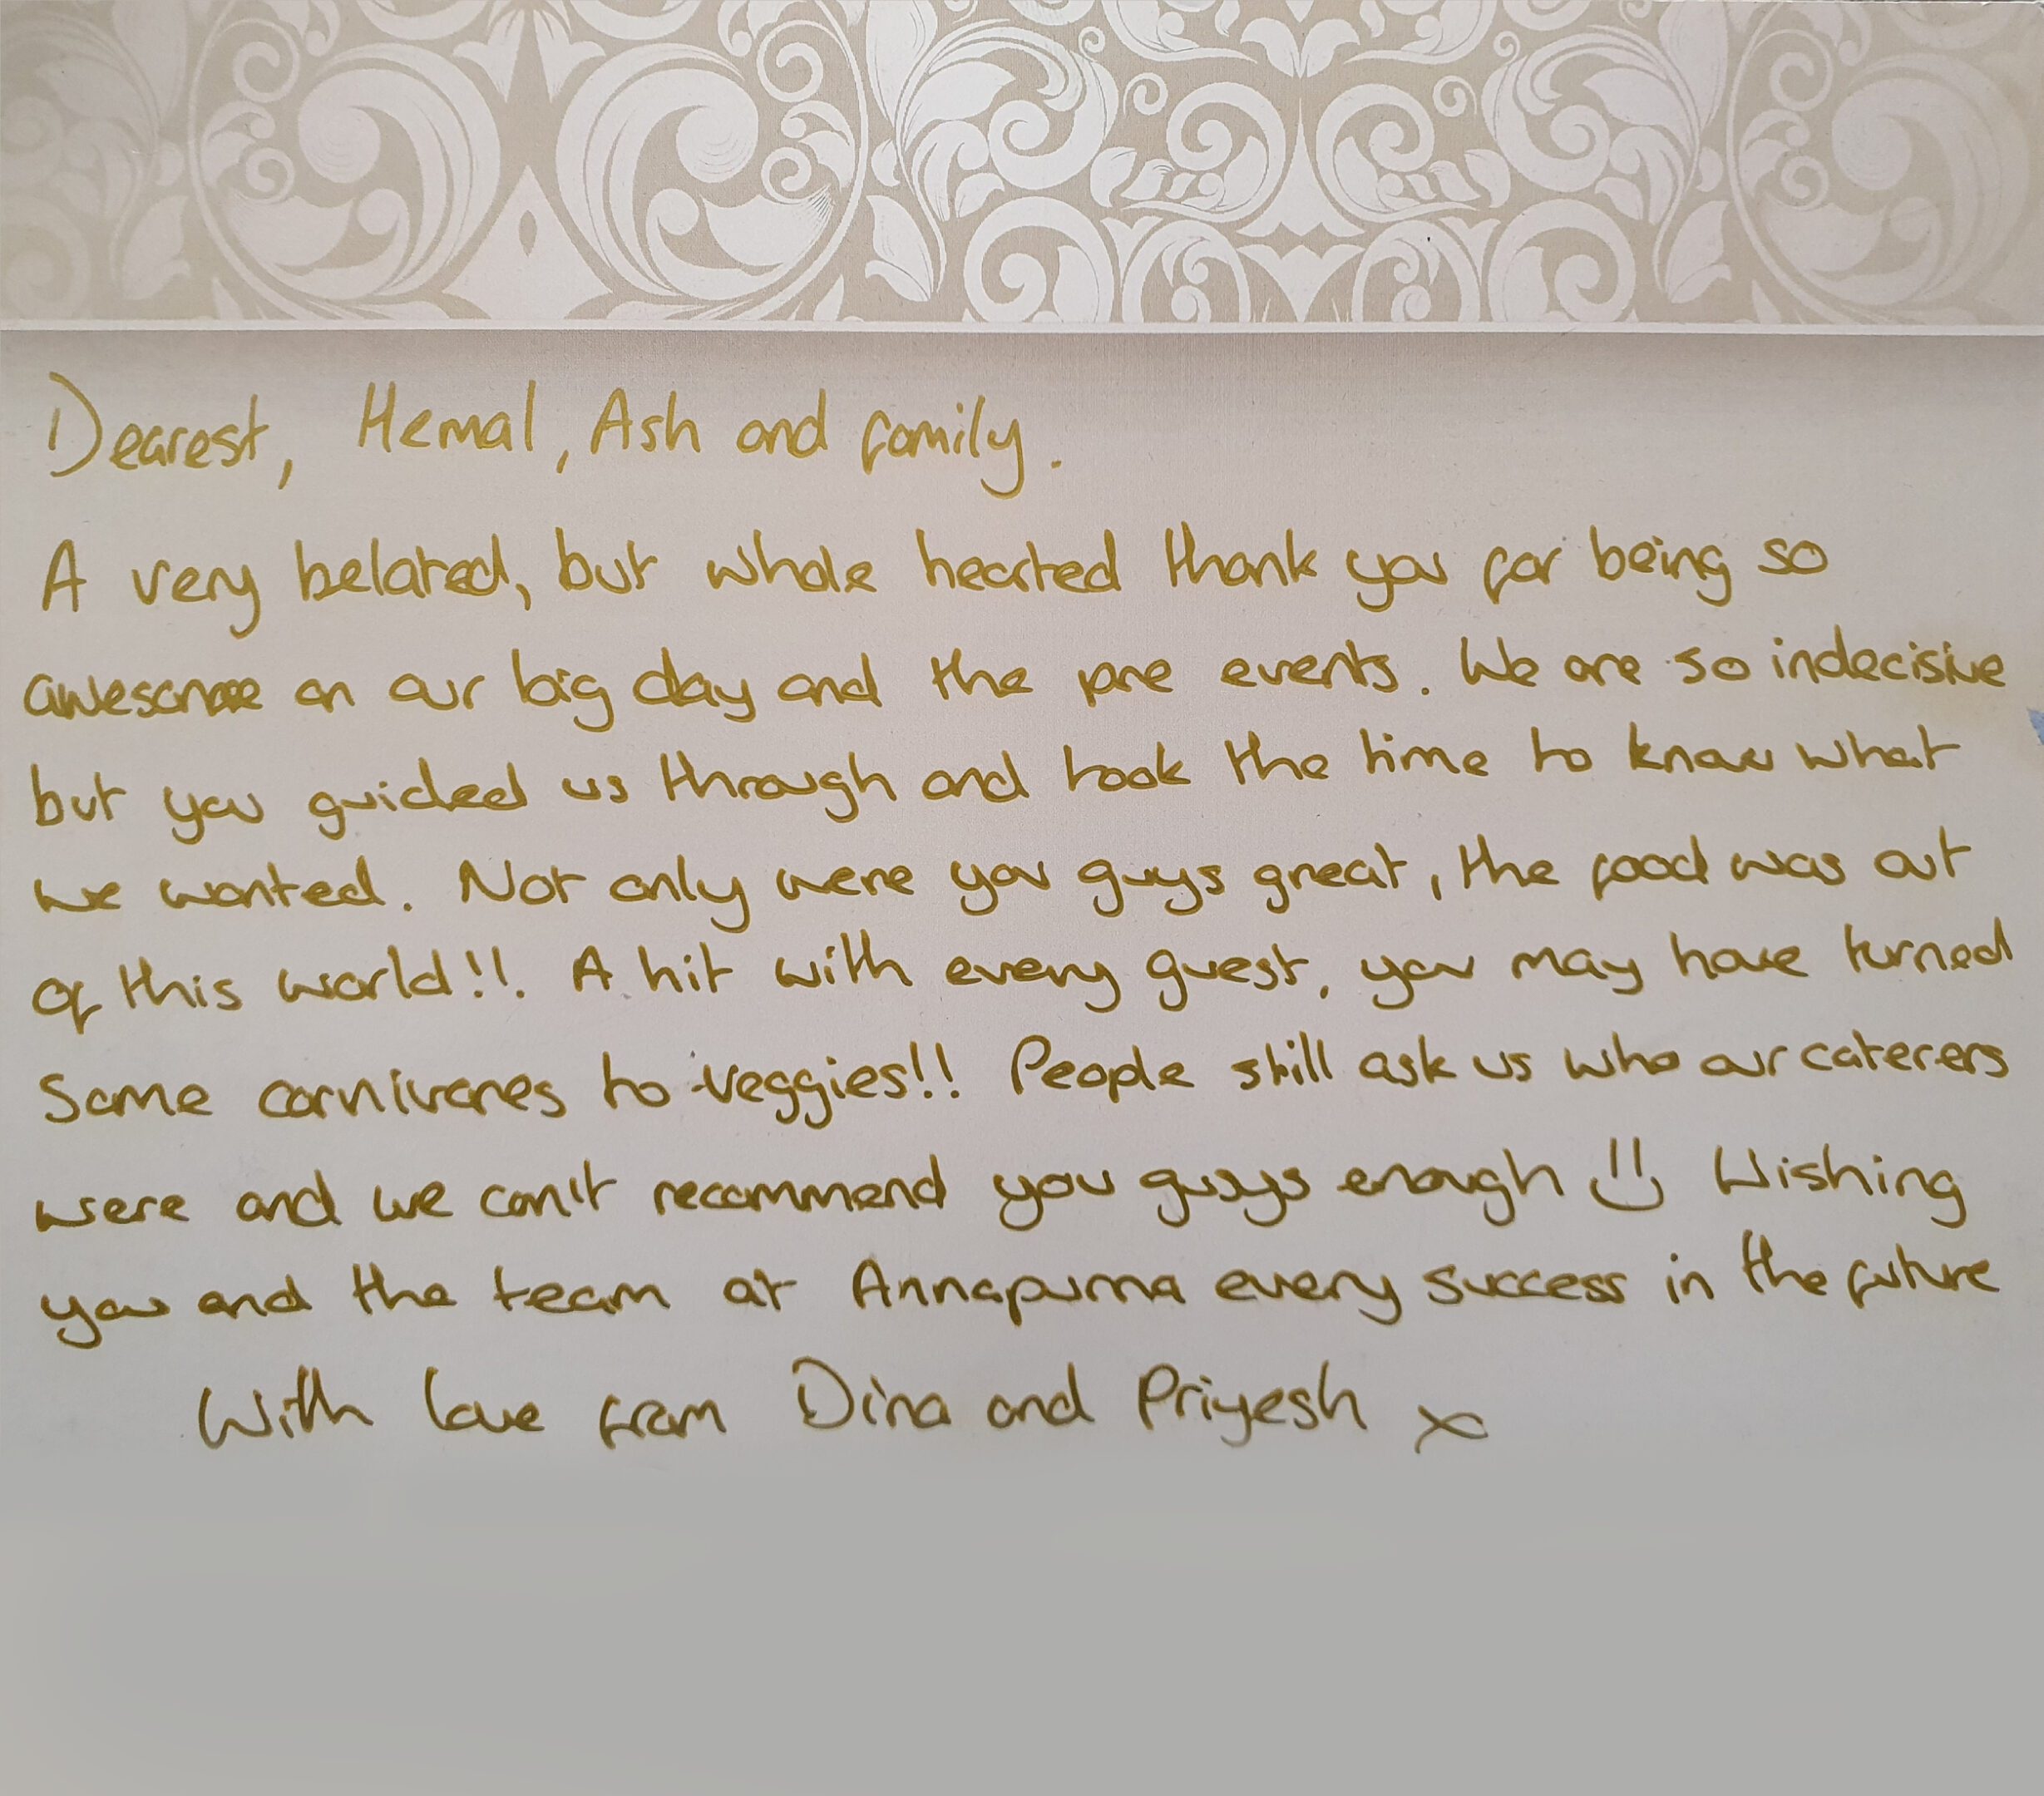 Dearest, Hemal, Ash and family.
A very belated, but whole hearted thank you for being so
awesome on our big day and the pre events. We are so indecisive
but you guided us through and took the time to know what
we wanted. Not only were you guys great, the food was out
of this world!!. A hit with every guest, you may have turned
some carnivores to veggies!! People still ask us who our caterers
were and we can't recommend you guys enough Wishing
you and the team at Annapurna every success in the future
With love from Dina and Priyesh x